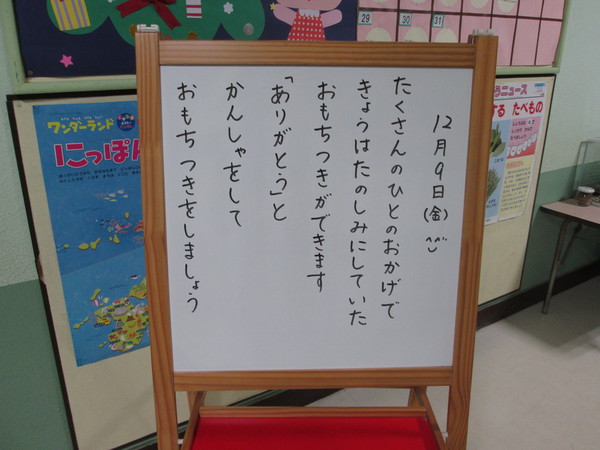 12月9日(金)
たくさんのひとのおかげで
きょうはたのしみにしていた
おもちつきができます
「ありがとう」と
かんしゃをして
おもちつきをしましょう
29
30
31
ワンダーランド
にっぽん
うニュース
する たべもの